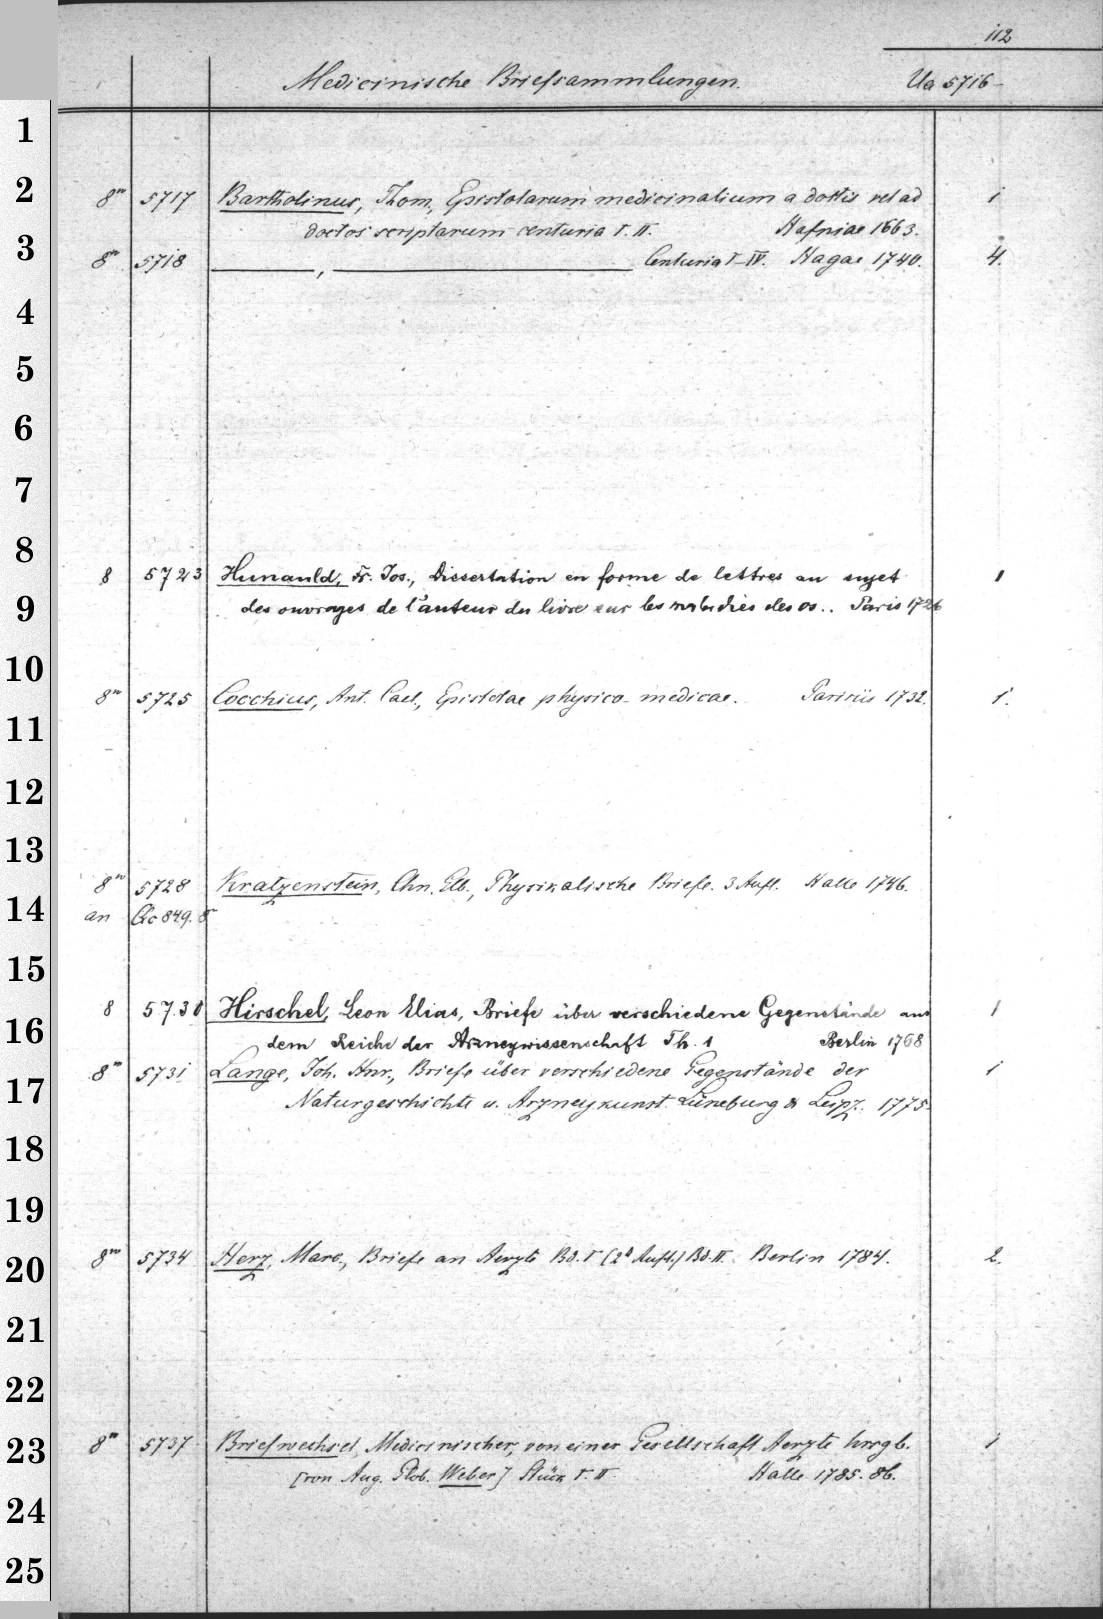 112
Medicinische Briefsammlungen. Ua 5716-
1
2 8° 5717 Bartholinus, Thom., Epistolarum medicinalium a doctis vel ad 1
doctos scriptarum centuria I. II. Hafniae 1663.
3 8° 5718 ———, ——————— Centuria I-IV. Hagae 1740. 4.
4
5
6
7
8 8 5723 Hunauld, Fr. Jos., Dissertation en forme de lettres au sujet 1
9 des ouvrages de l'auteur du livre sur les maladies des os.. Paris 1726
10 8° 5725 Cocchius, Ant. Cael., Epistolae physico-medicae. Parisiis 1732. 1.
11
12
13 8° 5728 Kratzenstein, Chn. Glb., Physikalische Briefe. 3 Aufl. Halle 1746.
14 an 849. 8
15
8 5730 Hirschel, Leon Elias, Briefe über verschiedene Gegenstände aus 1
16 dem Reiche der Arzneywissenschaft Th. 1 Berlin 1768
8° 5731 Lange, Joh. Hnr., Briefe über verschiedene Gegenstände der 1
17 Naturgeschichte u. Arzneykunst. Lüneburg & Leipz. 1775.
18
19
20 8° 5734 Herz, Marc., Briefe an Aerzte Bd. I (2e Aufl.) Bd. II. Berlin 1784. 2.
21
22
23 8° 5737 Briefwechsel, Medicinischer, von einer Gesellschaft Aerzte hrsgb. 1
[von Aug. Glob. Weber] Stück I. II Halle 1785. 86.
24
25